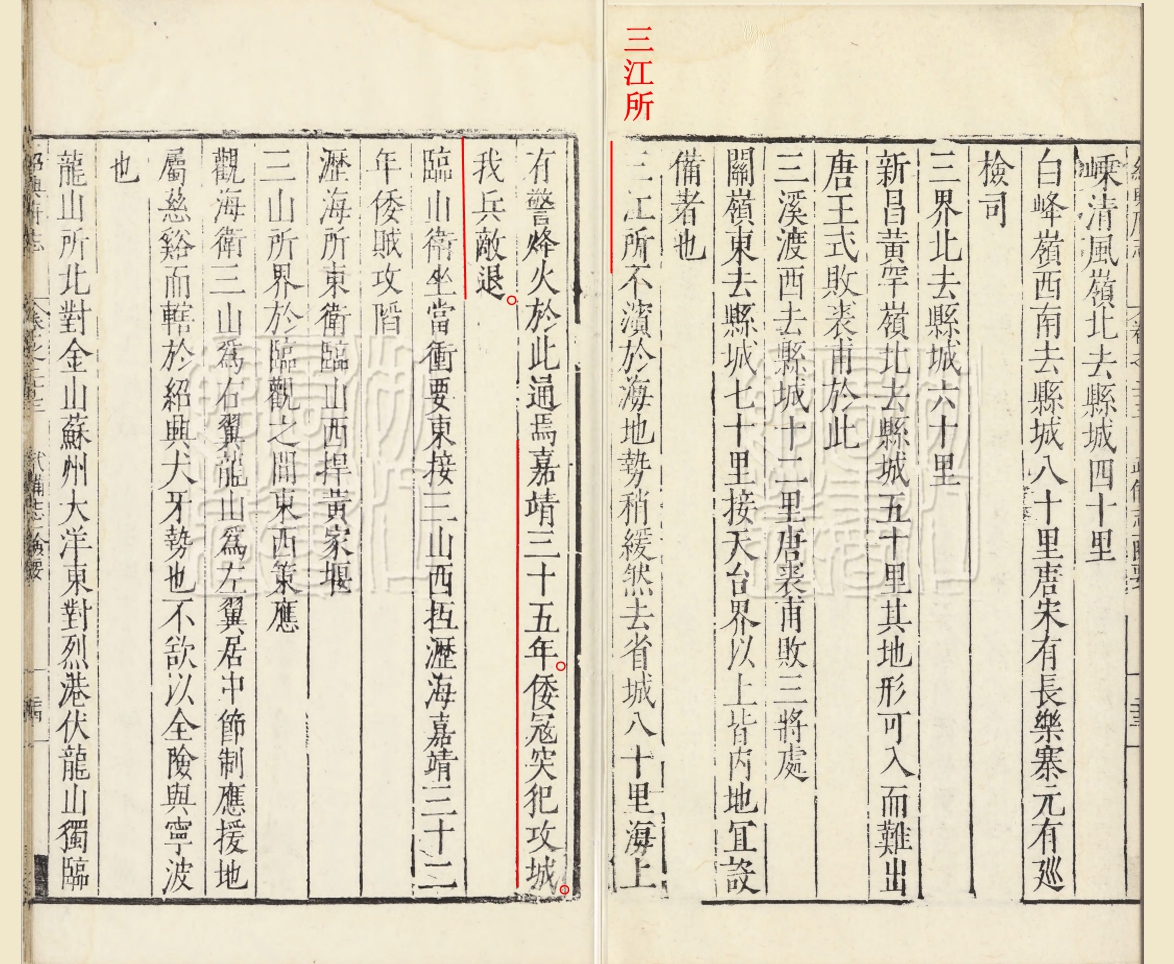 三江所
嵊清風嶺北去縣城四十里
白峰嶺西南去縣城八十里唐宋有長樂寨元有廵
檢司
三界北去縣城六十里
新昌黃罕嶺北去縣城五十里其地形可入而難出
唐王式敗裘甫於此
三溪渡西去縣城十二里唐裘甫敗三將處
關嶺東去縣城七十里接天台界以上皆内地冝設
備者也
三江所不濱於海地勢稍緩然去省城八十里海上
有警烽火於此通焉嘉靖三十五年。倭冦突犯攻城。
我兵敵退。
臨山衛坐當衝要東接三山西抵瀝海嘉靖三十二
年倭賊攻䧟
瀝海所東衛臨山西捍黃家堰
三山所界於臨觀之間東西策應
觀海衛三山爲右翼龍山爲左翼居中節制應援地
屬慈谿而轄於紹興犬牙勢也不欲以全險與寧波
也
龍山所北對金山蘇州大洋東對烈港伏龍山獨臨